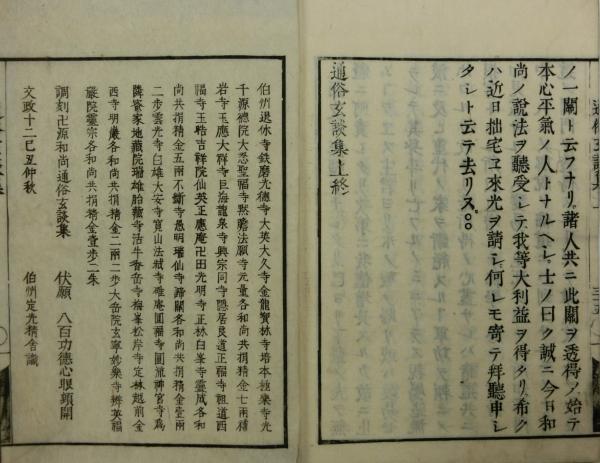 ノ一關ト云フナリ。諸人共ニ此關ヲ透得ノ始テ
本心平氣ノ人トナルヘシ。士ノ曰ク誠ニ今日和
尚ノ說法ヲ聽受シテ我等大利益ヲ得タリ。希ク
ハ近日拙宅ヱ來光ヲ請シ何レモ寄テ拜聽申シ
タシト云テ去リヌ。
通俗玄談集上終
伯州退休寺鉄磨光德寺大英大久寺金龍寳林寺培本極樂寺光
千源德院大悉聖福寺黙膽法願寺元量各和尚共捐精金七兩積
岩寺玉應大祥寺巨海龍泉寺興宗同寺隱居良道正福寺祖道西
福寺玉晧吉祥院仙英正應庵卍田光明寺正林白峯寺靈成各和
尚共捐精金五兩不斷寺愚明瑞仙寺諦關各和尚共捐精金壹兩
二步雲光寺白雄大安寺寛山法城寺雄庵圓福寺圓流神宮寺爲
隣當家地藏院瑞雄胎藏寺活牛香岳寺梅峯松岸寺定林越前金
西寺明嚴各和尚共捐精金二兩二步大岳院玄寧妙樂寺辨英福
嚴院靈宗各和尚共捐精金壹步二朱
調刻卍源和尚通俗玄談集 伏願 八百功德心眼頓開
文政十二己丑仲秋 伯州定光精舍識